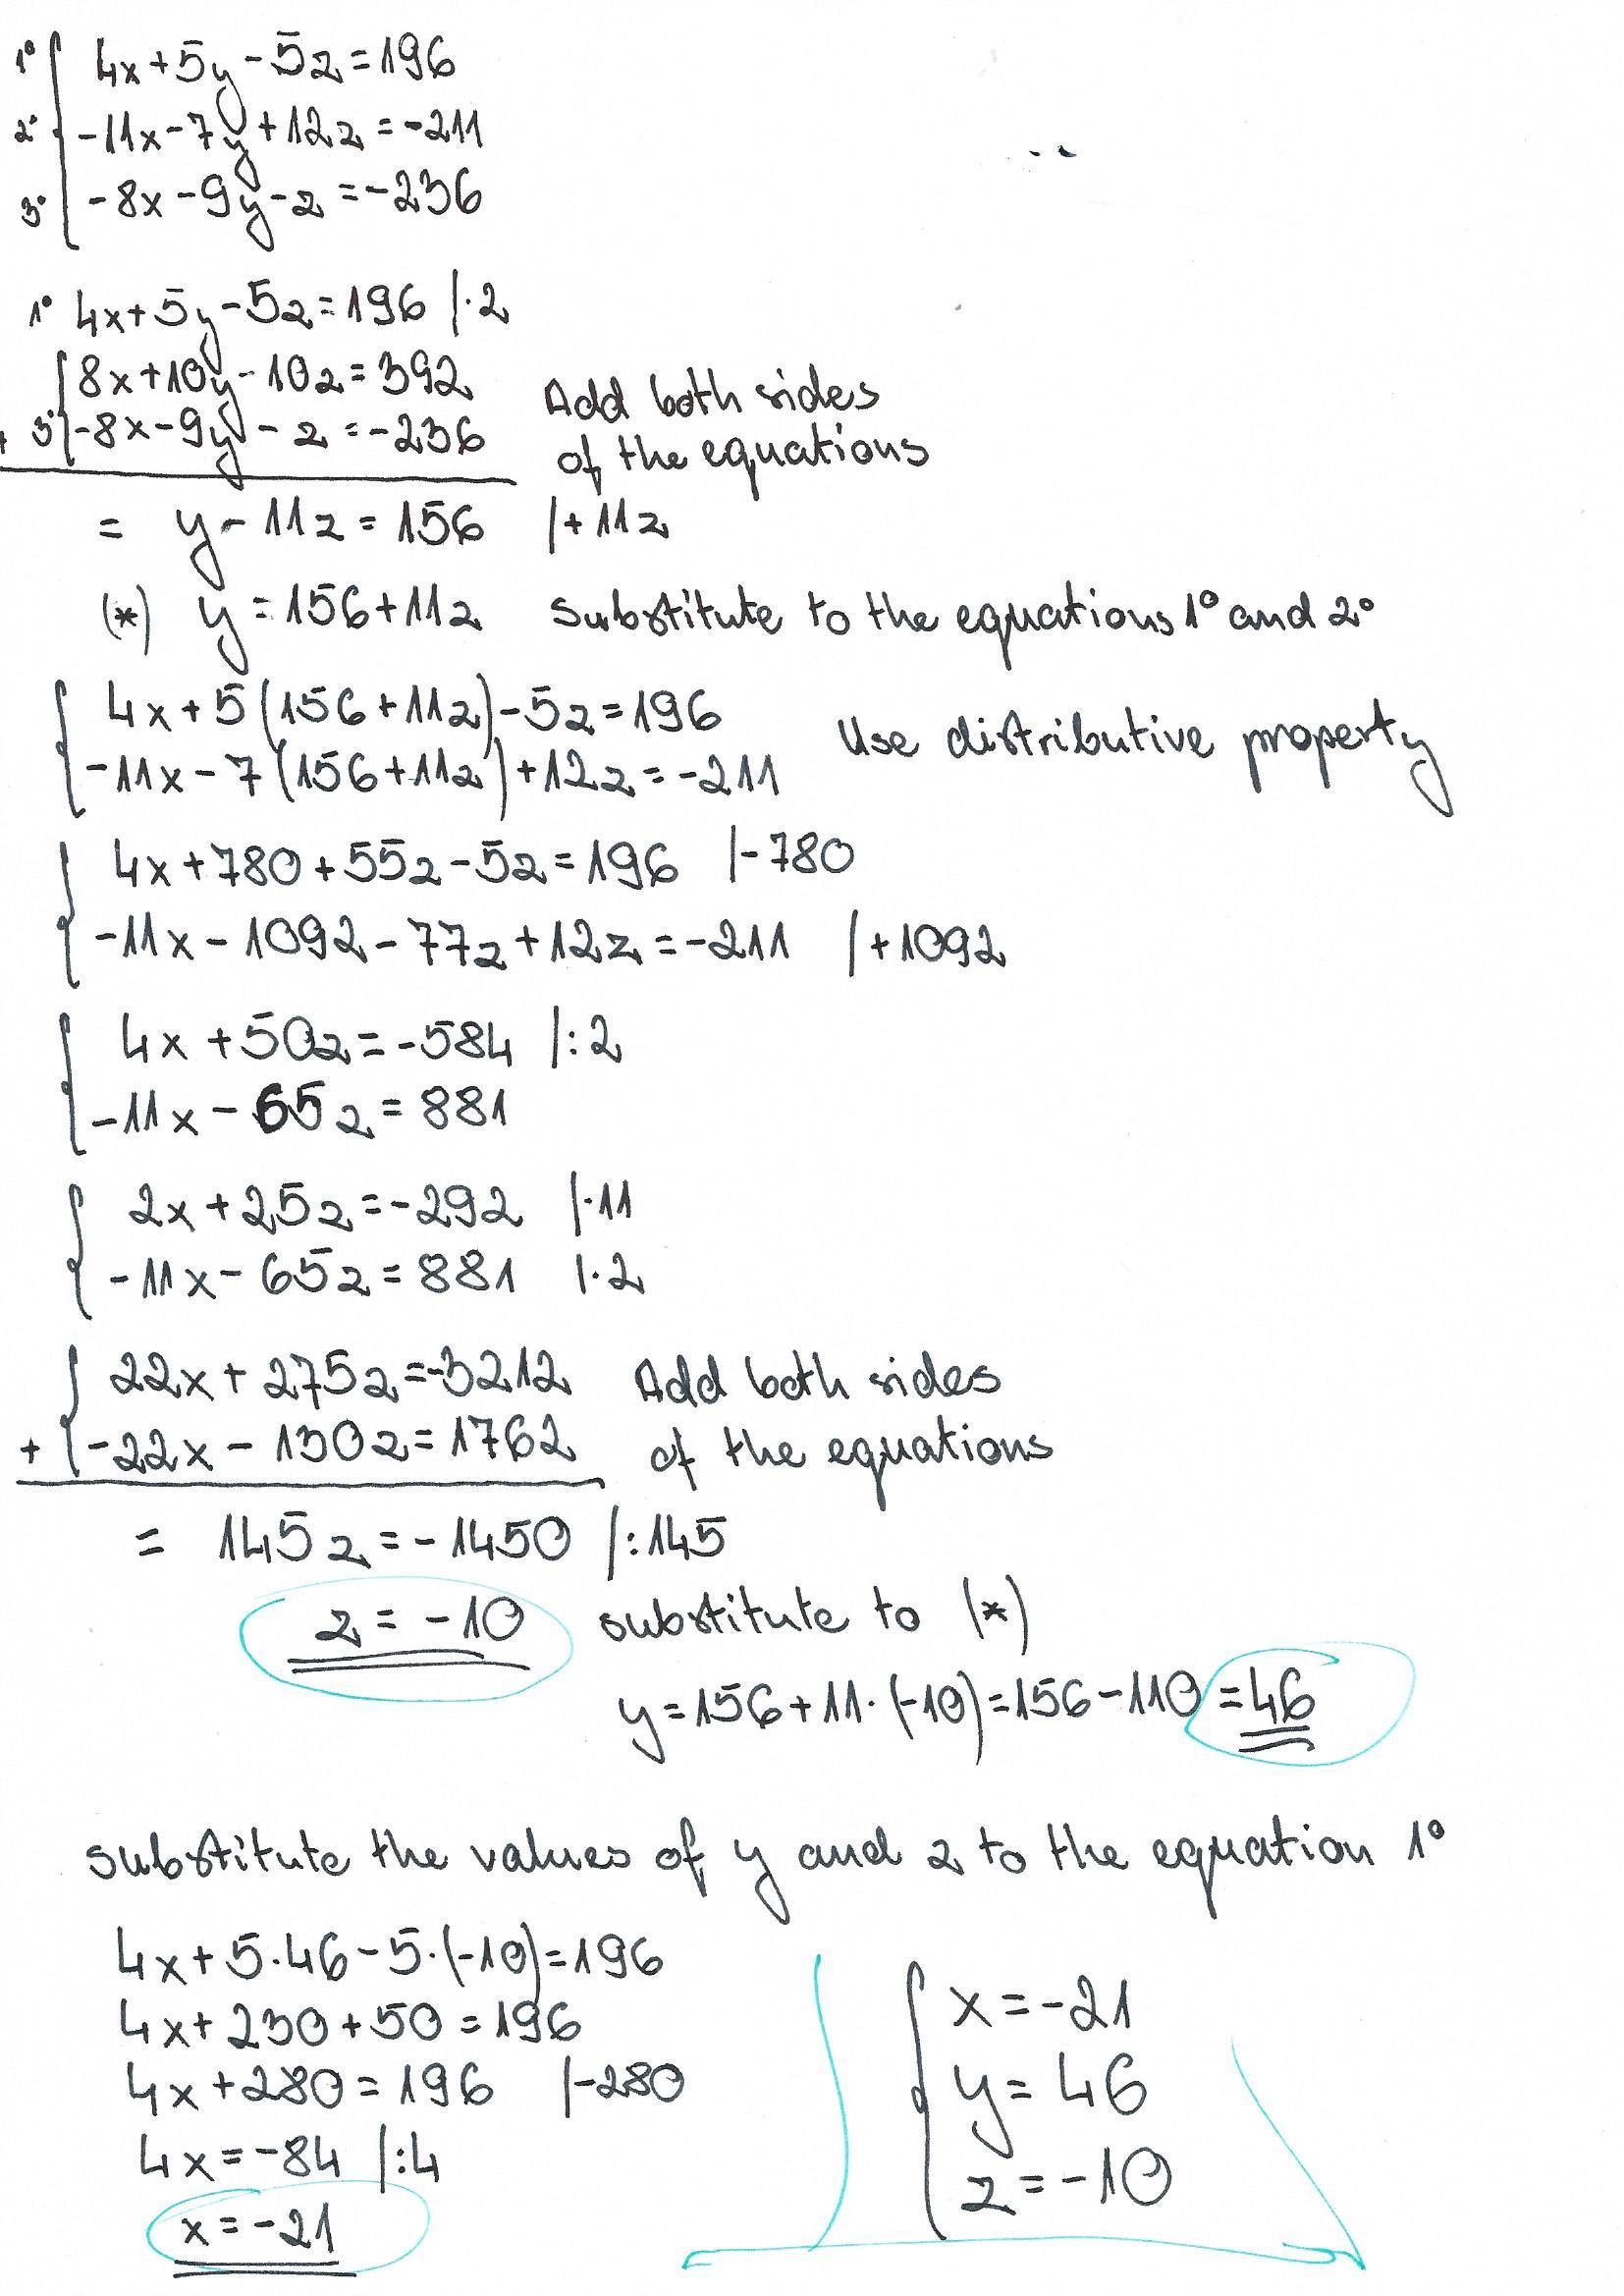 1° 4x+5y-5z=196
2° -11x-7y+12z=-211
3° -8x-9y-z=-236
1° 4x+5y-5z=196 /·2
8x+10y-10z=392 Add both sides
+ 3° -8x-9y-z=-236 of the equations
= y-11z=156 /+11z
(*) y=156+11z substitute to the equations 1° and 2°
4x+5(156+11z)-5z=196 Use distributive property
-11x-7(156+11z)+12z=-211
4x+780+55z-5z=196 /-780
-11x-1092-77z+12z=-211 /+1092
4x+50z=-584 /:2
-11x-65z=881
2x+25z=-292 /·11
-11x-65z=881 /·2
22x+275z=-3212 Add both sides
+ -22x-130z=1762 of the equations
= 145z=-1450 /:145
z=-10 substitute to (*)
y=156+11·(-10)=156-110=46
substitute the values of y and z to the equation 1°
4x+5·46-5·(-10)=196
4x+230+50=196
4x+280=196 /-280
4x=-84 /:4
x=-21
x=-21
y=46
z=-10